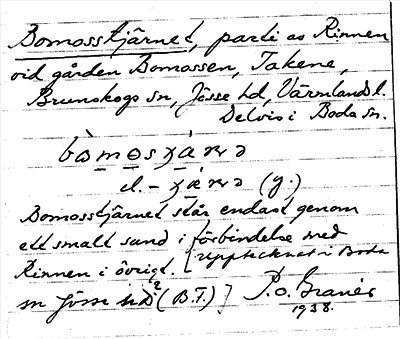 Bomosstjärnet, parti av Rinnen
vid gården Bomossen, Takene,
Brunskogs sn, Jösse hd, Värmlands l.
Delvis i Boda sn.
el. - (y.)
Bomosstjärnet står endast genom
ett smalt sund i förbindelse med
Rinnen i övrigt. [Upptecknat i Boda
sn Jösse hd? (B.T.)] P.O. Granér
1938.